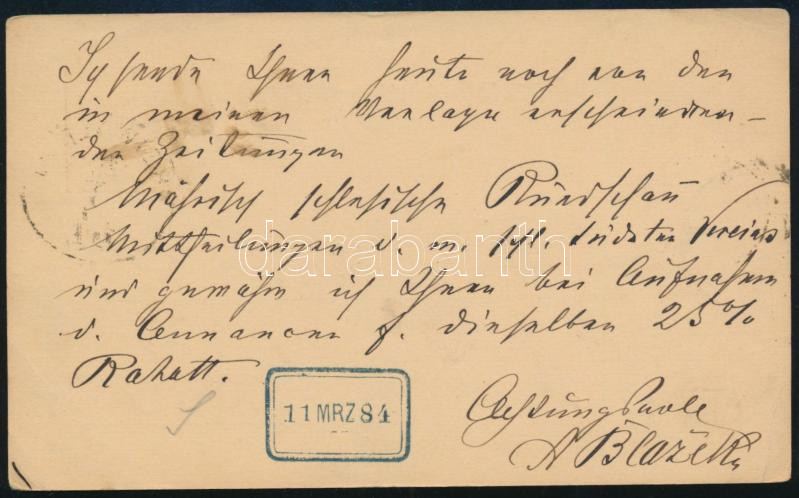 Ich sende Ihnen heute noch von den
in meinem Verlage erscheinen-
den Zeitungen
Mährisch schlesische Rundschau
Mittheilungen d. m. schl. Verein
und gewähre ich Ihnen bei Aufnahme
d. Annancen f. dieselben 25%
Rabatt.
darabanth
11 MRZ 84
Achtungsvoll
A Blažek